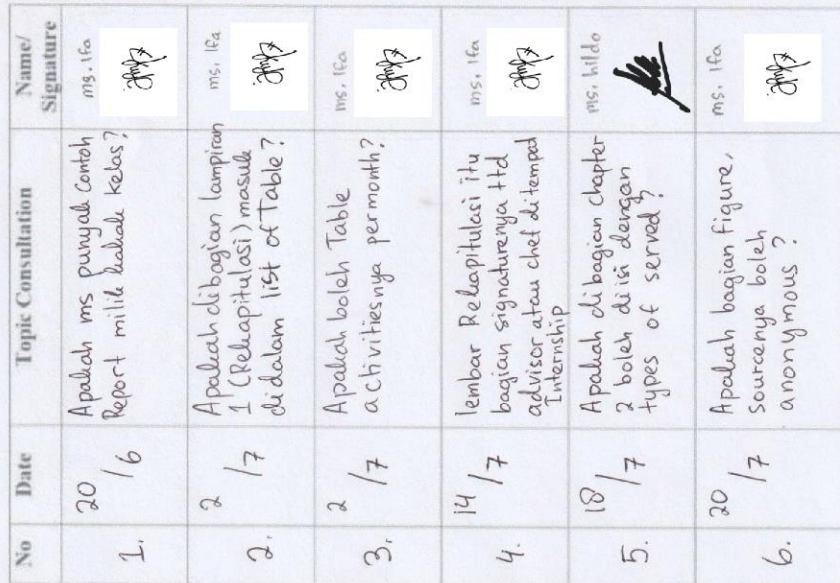 No Date Topic Consultation Name/
Signature
1. 20/6 Apakah ms punyak Contoh ms. Ifa
Report milik kakak kelas?
2. 2/7 Apakah dibagian lampiran ms. Ifa
1 (Rekapitulasi) masuk
didalam list of Table?
3. 2/7 Apakah boleh Table ms. Ifa
activitiesnya permonth?
4. 14/7 lembar Rekapitulasi itu ms. Ifa
bagian signaturenya ttd
advisor atau chef ditempat
Internship
5. 18/7 Apakah dibagian chapter ms. hildo
2 boleh diisi dengan
types of served?
6. 20/7 Apakah bagian figure, ms. Ifa
sourcenya boleh
anonymous?